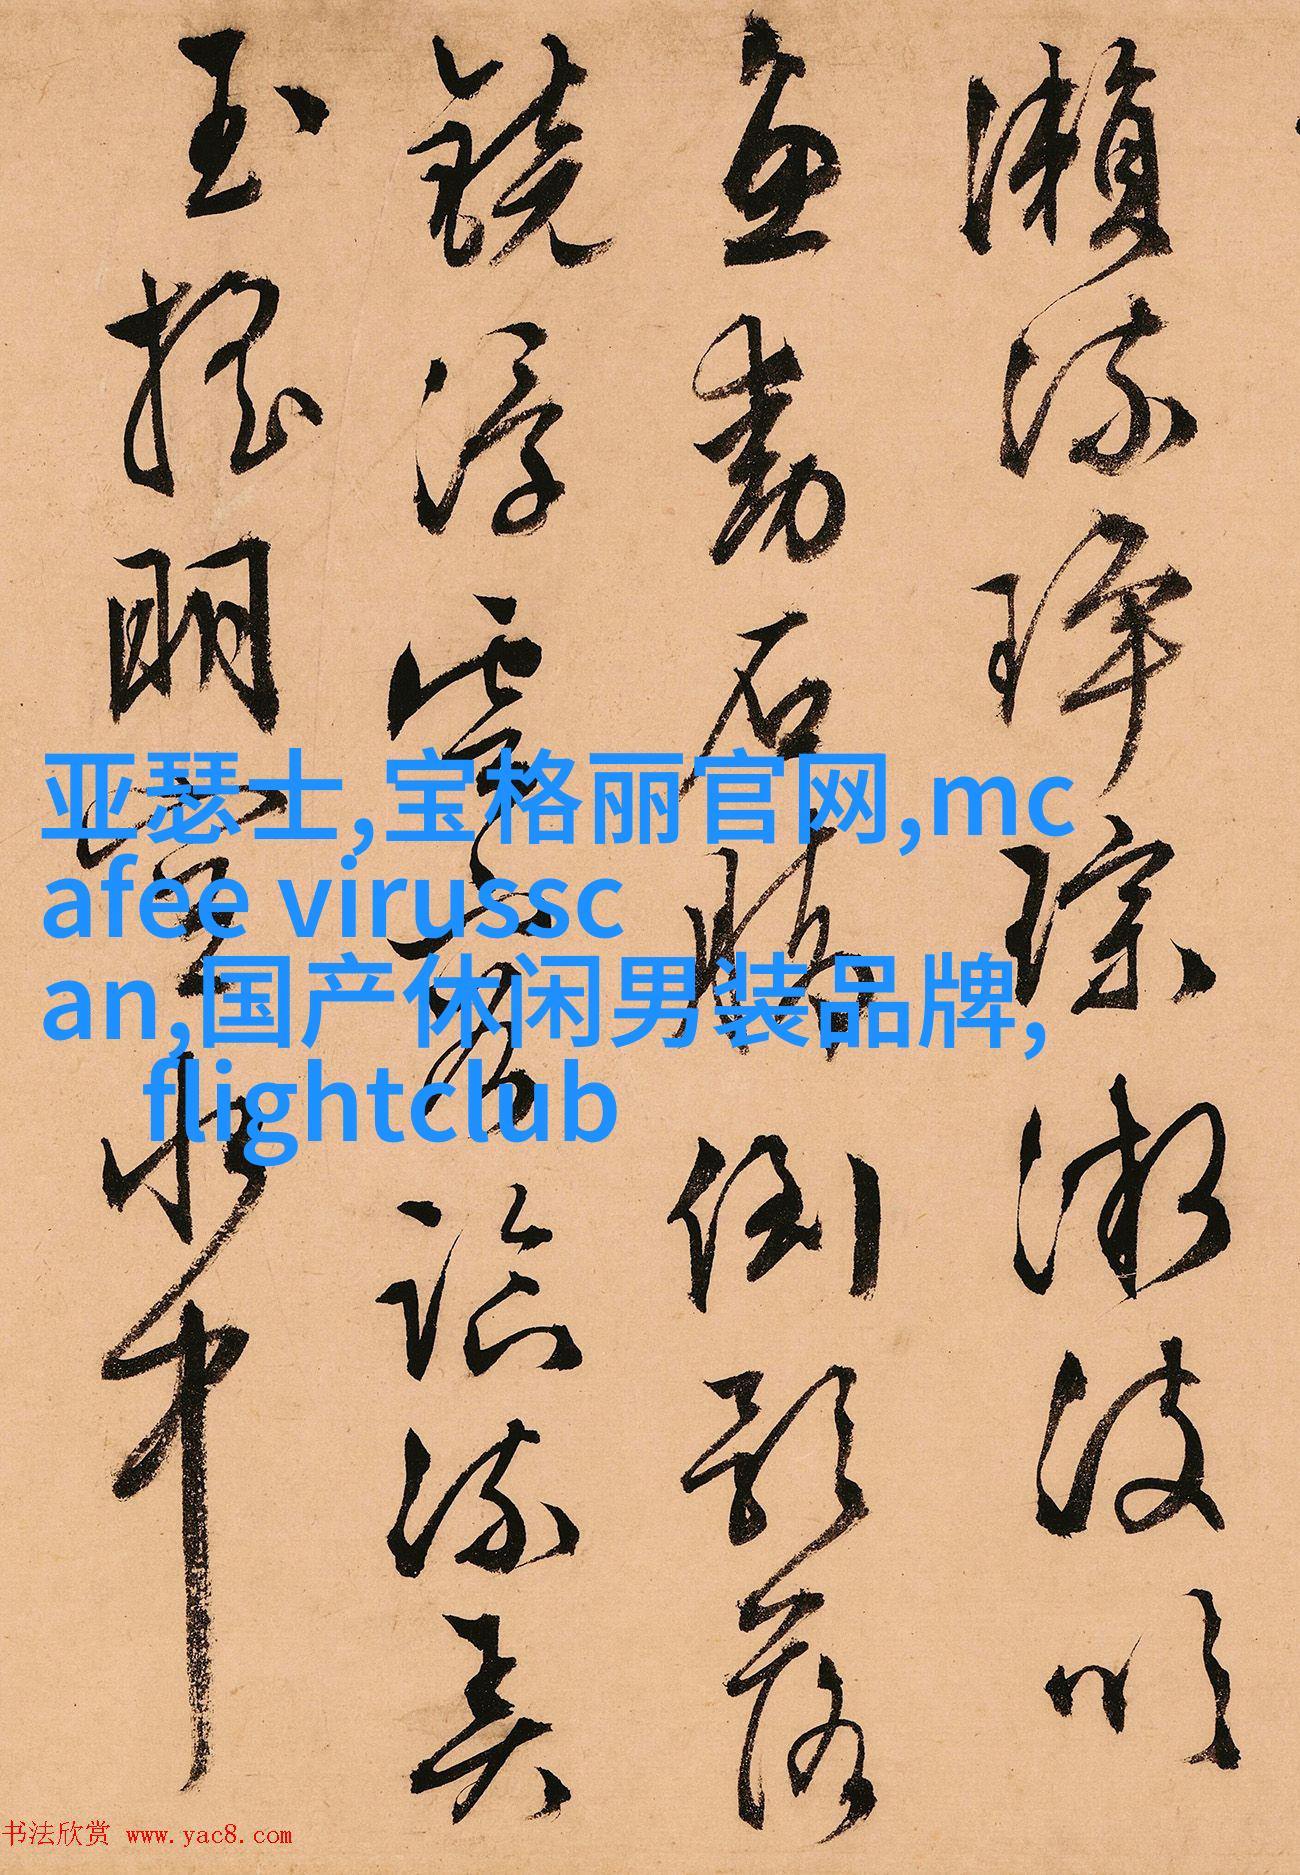 瀬流琤琮漱波以
魚動石倒影落
鏡浮雲流
玉摇明水中
亚瑟士,宝格丽官网,mc
afee virussc
an,国产休闲男装品牌,
flightclub
书法欣赏 www.yac8.com